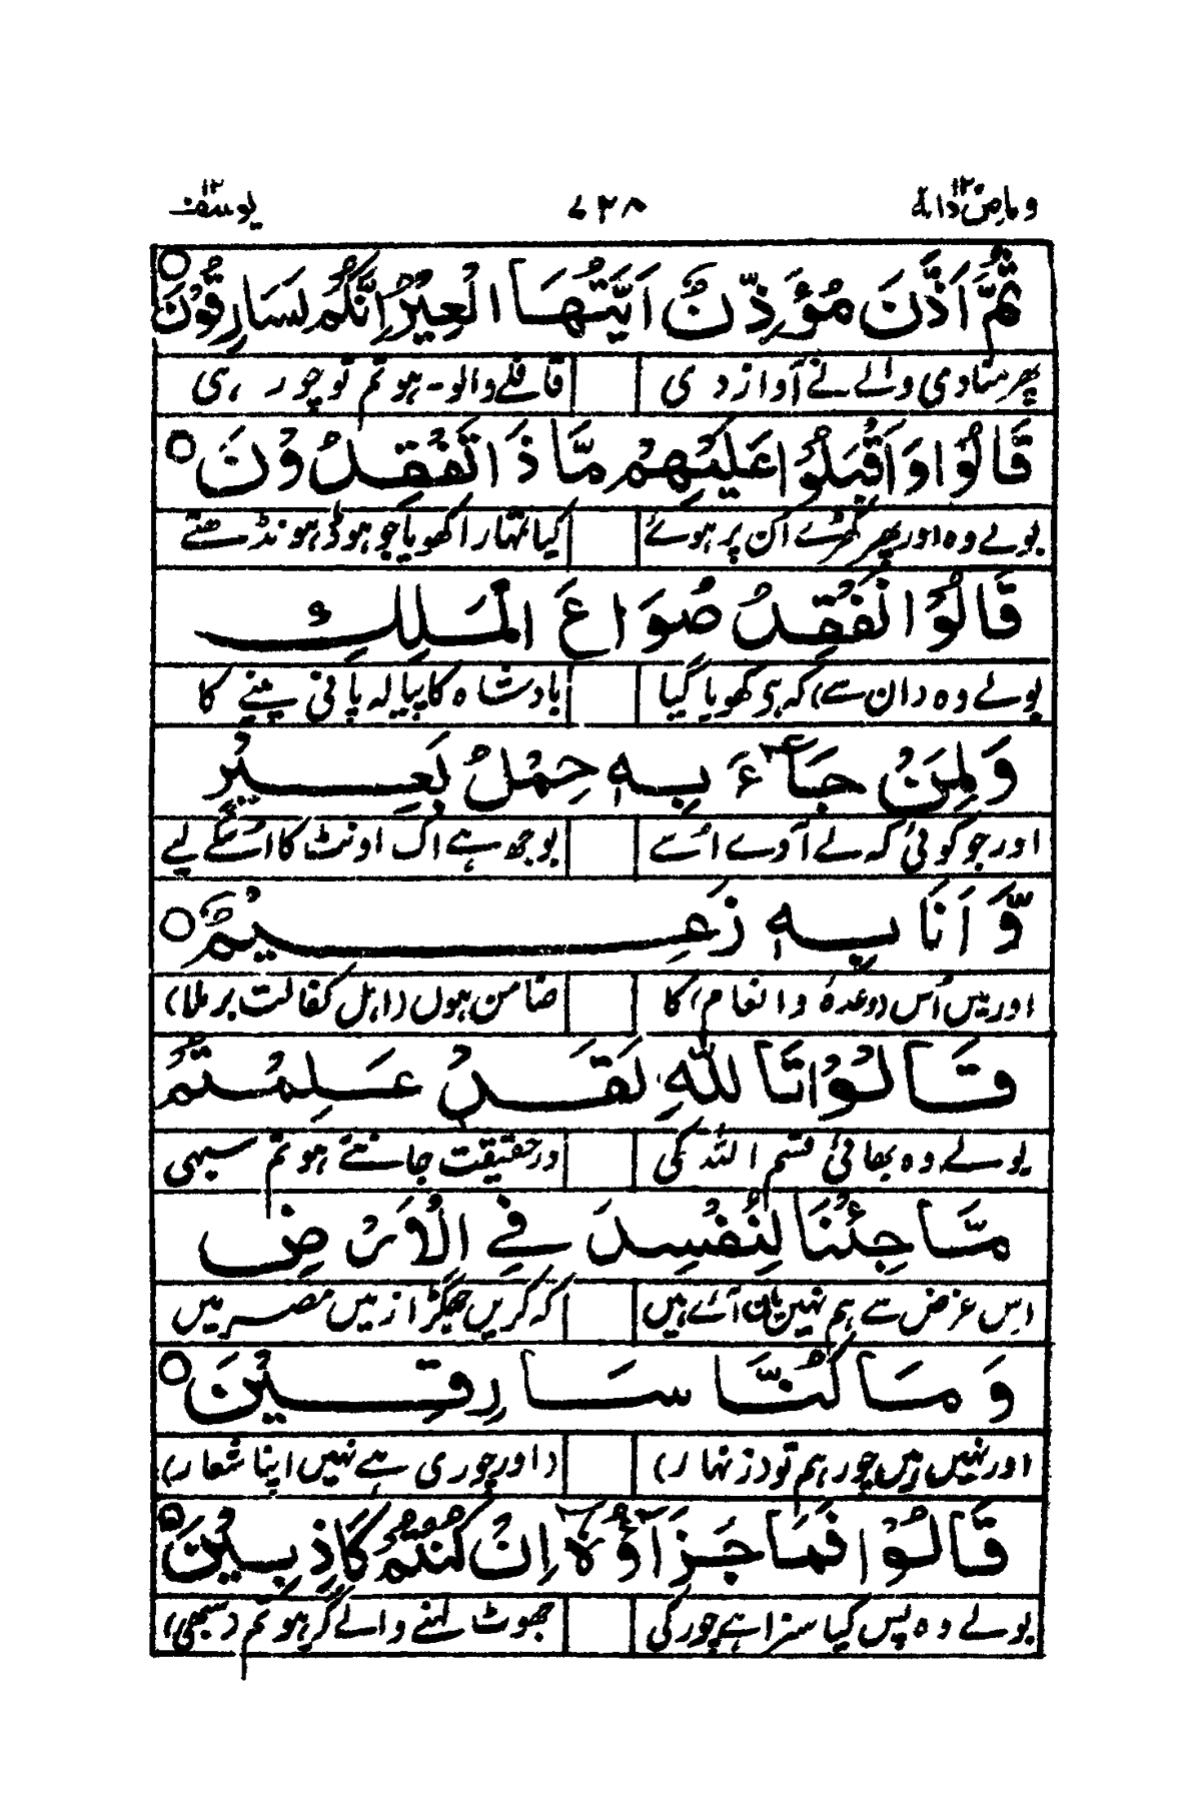 وما من دابة ۱۲ ۷۳۸ یوسف ۱۲
ثُمَّ اَذَّنَ مُؤَذِّنٌ اَیَّتُهَا الْعِیْرُ اِنَّكُمْ لَسَارِقُوْنَ ○
پھر منادی والے نے آواز دی قافلے والو۔ ہو تم تو چور ہی
قَالُوْا وَاَقْبَلُوْا عَلَیْهِمْ مَّا ذَا تَفْقِدُوْنَ ○
بولے وہ اور پھر کھڑے اُن پر ہوئے کیا تمہارا کھویا جو ہو ڈھونڈھتے
قَالُوْا نَفْقِدُ صُوَاعَ الْمَلِكِ
بولے وہ (ان سے) کہ ہے کھویا گیا بادشاہ کا پیالہ پانی پینے کا
وَلِمَنْ جَآءَ بِهٖ حِمْلُ بَعِیْرٍ
اور جو کوئی کہ لے آوے اُسے بوجھ ہے اک اونٹ کا اُسکے لیے
وَّ اَنَا بِهٖ زَعِیْمٌ ○
اور میں اُس (وعدۂ وانعام) کا ضامن ہوں (اہل کفالت برملا)
قَالُوْا تَاللّٰهِ لَقَدْ عَلِمْتُمْ
بولے وہ بھائی قسم اللہ کی درحقیقت جانتے ہو تم سبھی
مَّا جِئْنَا لِنُفْسِدَ فِی الْاَرْضِ
اِس غرض سے ہم نہیں یاں آئے ہیں کہ کریں جھگڑا زمیں مصر میں
وَمَا كُنَّا سَارِقِیْنَ ○
اور نہیں ہیں چور ہم تو (زنہار) (اور چوری ہے نہیں اپنا شعار)
قَالُوْا فَمَا جَزَآؤُهٗۤ اِنْ كُنْتُمْ كَاذِبِیْنَ ○
بولے وہ پس کیا سزا ہے چور کی جھوٹ کہنے والے گر ہو تم (سبھی)